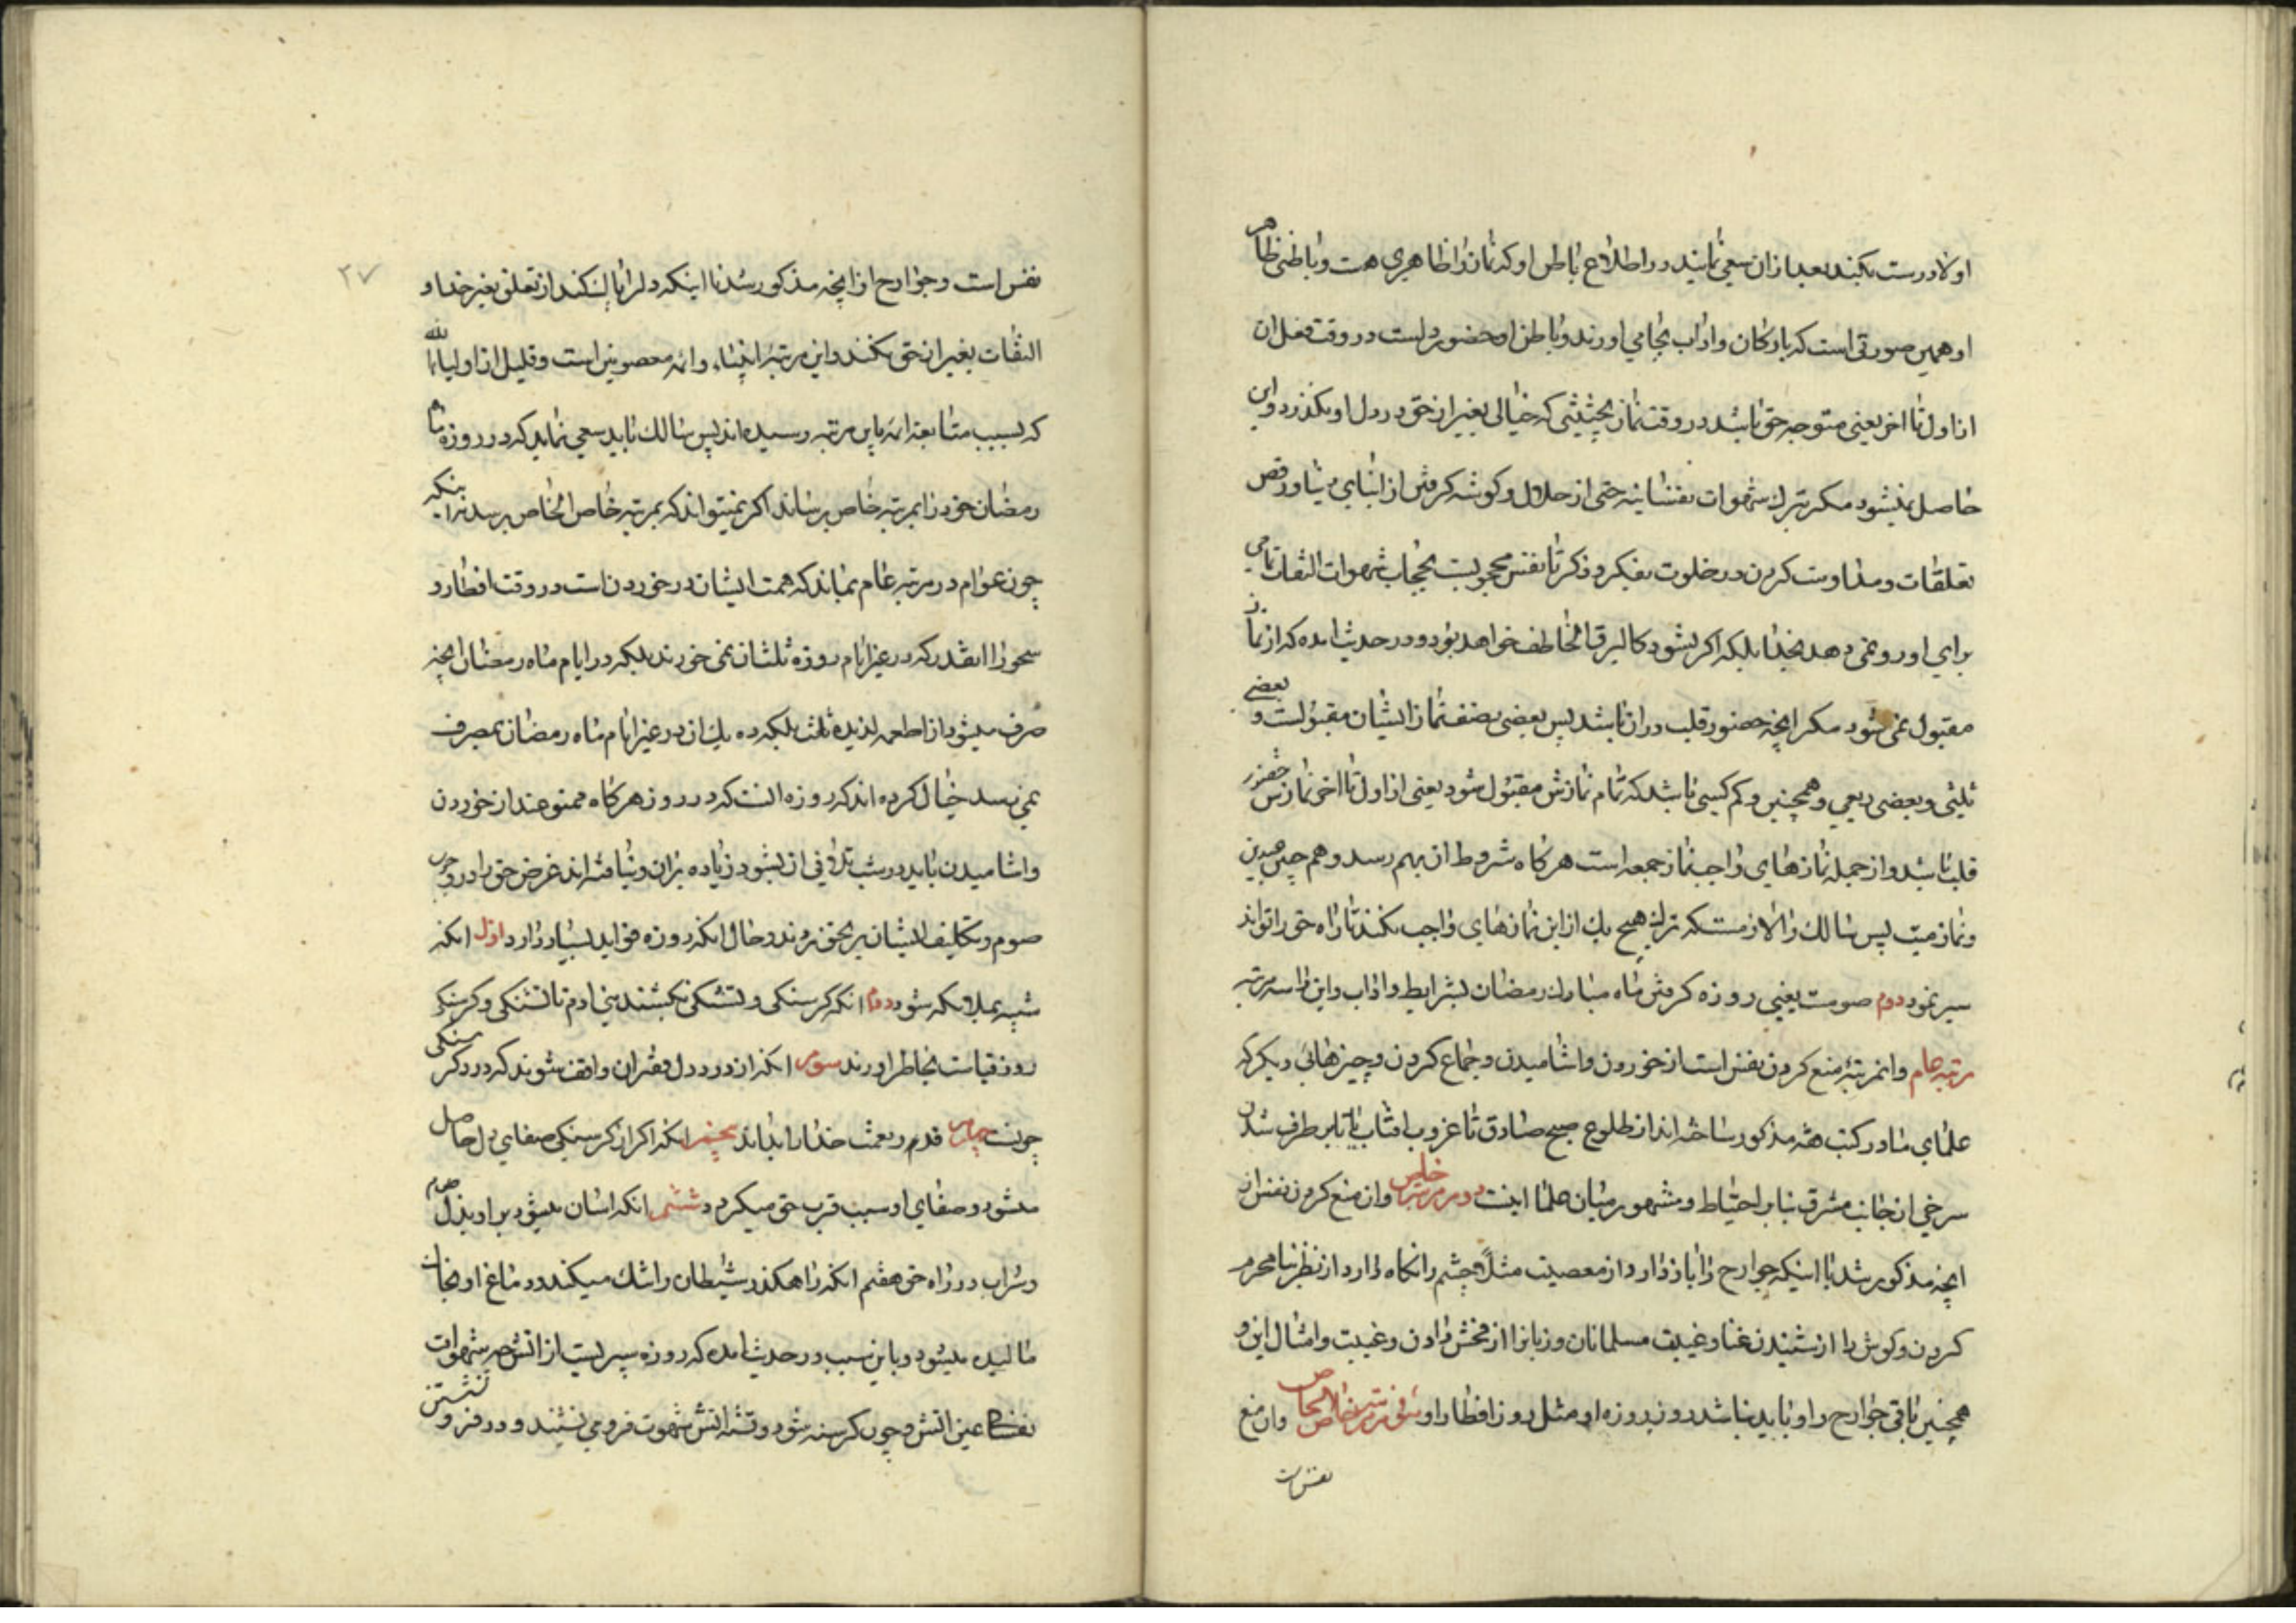 اولا درست بکند بعد ازان سعی نمایند در اطلاع باطن او که نماز را ظاهری هست و باطنی ظاهر
او همین صورتی است که بارکان و اداب بجا می اورند و باطن او حضور دلست در وقت فعل ان
از اول تا اخر یعنی متوجه حق باشد در وقت نماز بحیثیتی که خیالی بغیر از حق در دل او نگذرد و این
حاصل نمیشود مکر بترک شهوات نفسانیه حتی از حلال و کوشه کرفتن از ابنای دنیا و رفض
تعلقات و مداومت کردن در خلوت بفکر و ذکر تا نفس محجوبست بحجاب شهوات التفاتی
برای او رو نمی دهد بخدا بلکه اکر بشود کالبرق الخاطف خواهد بود و در حدیث امده که از نماز
مقبول نمی شود مکر انچه حضور قلب دران باشد پس بعضی نصف نماز ایشان مقبولست و بعضی
ثلثی و بعضی ربعی و همچنین و کم کسی باشد که تمام نمازش مقبول شود یعنی از اول تا اخر نمازش حضور
قلب باشد و از جمله نمازهای واجب نماز جمعه است هرکاه شروط ان بهم رسد و هم چنین عیدین
و نماز میت پس سالک را لازمست که ترک هیچ یک از این نمازهای واجب نکند تا راه حق را تواند
سیر نمود دوم صومست یعنی روزه کرفتن ماه مبارک رمضان بشرایط و اداب و این را سه مرتبه
مرتبه عام و انمرتبهٔ منع کردن نفس است از خوردن و اشامیدن و جماع کردن و چیزهائی دیکر که
علمای ما در کتب فقه مذکور ساخته اند از طلوع صبح صادق تا غروب افتاب یا تا برطرف شدن
سرخی از جانب مشرق بنابر احتیاط و مشهور میان علما اینست دوم مرتبه خاص و ان منع کردن نفس از
انچه مذکور شد با اینکه جوارح را باز دارد از معصیت مثلاً چشم را نکاه دارد از نظر نامحرم
کردن و کوش را از شنیدن غنا و غیبت مسلمانان و زبانرا از فحش دادن و غیبت و امثال این و
همچنین باقی جوارح را و باید نباشد روز روزه او مثل روز افطار او سوم مرتبه خاص الخاص و ان منع
نفس است
۲۷
نفس است و جوارح از انچه مذکور شد با اینکه دلرا پاک کند از تعلق بغیر خدا و
التفات بغیر از حق نکند و این مرتبهٔ انبیاء و ائمه معصومین است و قلیل از اولیاء الله
که بسبب متابعت ائمه باین مرتبه رسیده اند پس سالک باید سعی نماید که در روزه ماه
رمضان خود را بمرتبه خاص برساند اکر نمیتواند که بمرتبه خاص الخاص برسد نه اینکه
چون عوام در مرتبه عام بماند که همت ایشان در خوردن است در وقت افطار و
سحور را انقدر که در غیر ایام روزه ثلث ان نمی خورند بلکه در ایام ماه رمضان انچه
صرف میشود از اطعمه لذیذه ثلث بلکه ده یک ان در غیر ایام ماه رمضان بمصرف
نمی رسد خیال کرده اند که روزه انست که در روز هرکاه ممنوعند از خوردن
و اشامیدن باید در شب تلافی ان بشود زیاده بران و نیافته اند غرض حق را در وجوب
صوم و تکلیف ایشان پی بحق نبرند و حال انکه روزه فواید بسیار دارد اول انکه
شبیه بملائکه شود دوم انکه کرسنکی و تشنکی بکشند بنی ادم تا تشنکی و کرسنکی
روز قیامت بخاطر اورند سوم انکه از درد دل فقران واقف شوند که درد کرسنکی
چونست چهارم قدر نعمت خدا را بداند پنجم انکه اکر از کرسنکی صفای دل حاصل
میشود و صفای او سبب قرب حق میکردد ششم انکه اسان میشود بر او بذل طعام
و شراب در راه حق هفتم انکه راهکذر شیطان را تنک میکند و دماغ او بخاک
مالیده میشود و باین سبب در حدیث امده که روزه سپریست از اتش چه شهوات
نفسانی عین اتش و چون کرسنه شود و تشنه اتش شهوت فرو می نشیند و در فرو نشستن